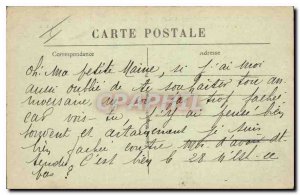 CARTE POSTALE
Correspondance
Adresse
Oh! Ma petite Marie, si j'ai moi
aussi oublié de te souhaiter ton an
niversaire fâchée
car vois-tu, j'y ai pensé bien
souvent et certainement je suis
bien fâchée contre moi d'avoir at
tendre, c'est bien le 28 n'est-ce
pas?